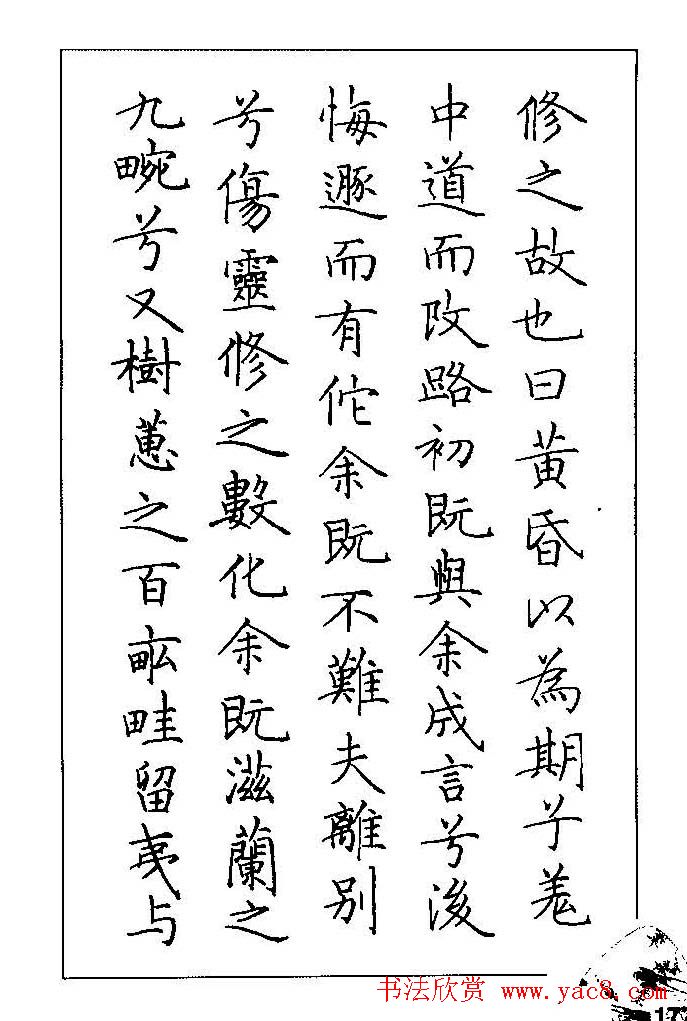 修之故也曰黄昏以為期兮羌
中道而改路初既與余成言兮後
悔遯而有佗余既不難夫離別
兮傷靈修之數化余既滋蘭之
九畹兮又樹蕙之百畝畦留夷与
书法欣赏 www.yac8.com